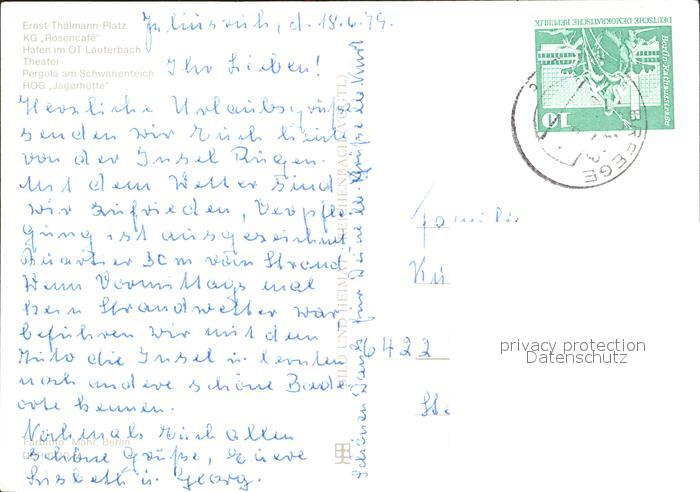 Ernst-Thälmann-Platz
KG „Rosencafé"
Hafen im OT Lauterbach
Theater
Pergola am Schwanenteich
HOG „Jägerhütte"
Juliusruh, d. 18.6.79.
Ihr Lieben!
Herzliche Urlaubsgrüße
senden wir Euch
von der Insel Rügen.
Mit dem Wetter sind
wir zufrieden, Verpfle-
gung ist ausgezeichnet
Quartier vom Strand
Wenn Vormittags mal
kein Strandwetter war
wir mit dem
Auto die Insel u. lernten
noch andere schöne Bade-
orte kennen.
Nochmals Euch allen
schöne Grüße, Eure
Lisbeth u. Georg.
Schönen Dank für
BILD UND HEIMAT REICHENBACH (VOGTL)
Farbfoto: Mohr, Berlin
DEUTSCHE DEMOKRATISCHE REPUBLIK
Berlin, Rathausstraße
10
BREEGE
Familie
6422
privacy protection
Datenschutz